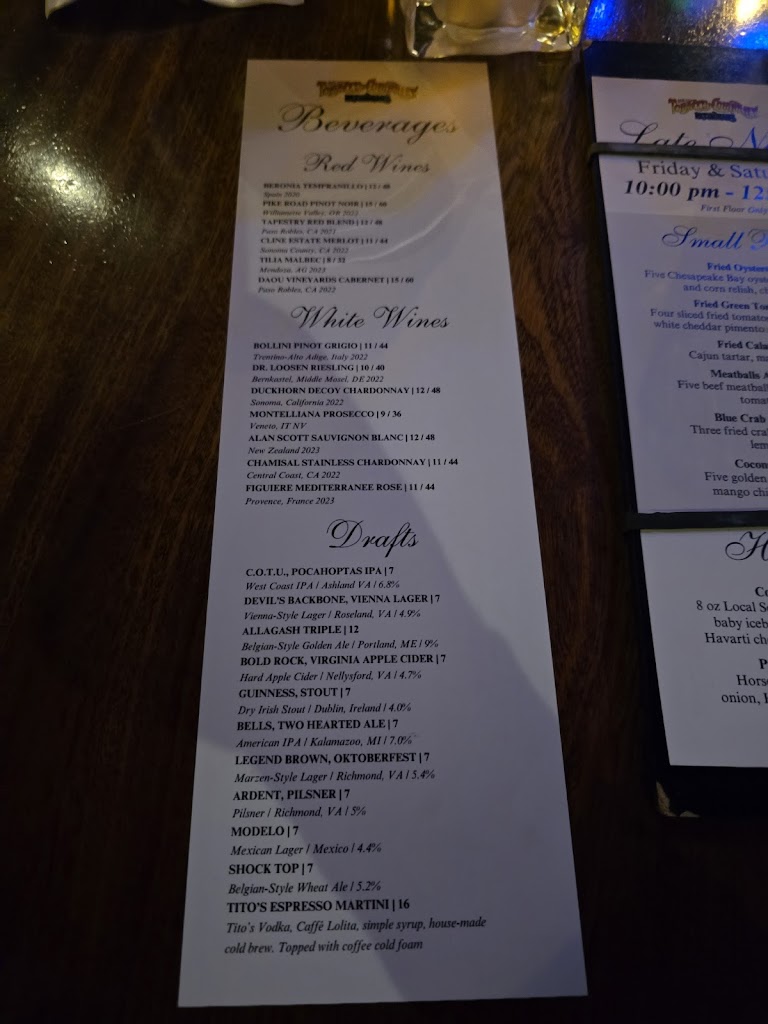 Beverages
Red Wines
BERONIA TEMPRANILLO | 12 / 48
Spain 2020
PIKE ROAD PINOT NOIR | 15 / 60
Willamette Valley, OR 2022
TAPESTRY RED BLEND | 12 / 48
Paso Robles, CA 2021
CLINE ESTATE MERLOT | 11 / 44
Sonoma County, CA 2022
TILIA MALBEC | 8 / 32
Mendoza, AG 2023
DAOU VINEYARDS CABERNET | 15 / 60
Paso Robles, CA 2022
White Wines
BOLLINI PINOT GRIGIO | 11 / 44
Trentino-Alto Adige, Italy 2022
DR. LOOSEN RIESLING | 10 / 40
Bernkastel, Middle Mosel, DE 2022
DUCKHORN DECOY CHARDONNAY | 12 / 48
Sonoma, California 2022
MONTELLIANA PROSECCO | 9 / 36
Veneto, IT NV
ALAN SCOTT SAUVIGNON BLANC | 12 / 48
New Zealand 2023
CHAMISAL STAINLESS CHARDONNAY | 11 / 44
Central Coast, CA 2022
FIGUIERE MEDITERRANEE ROSE | 11 / 44
Provence, France 2023
Drafts
C.O.T.U., POCAHOPTAS IPA | 7
West Coast IPA / Ashland VA / 6.8%
DEVIL'S BACKBONE, VIENNA LAGER | 7
Vienna-Style Lager / Roseland, VA / 4.9%
ALLAGASH TRIPLE | 12
Belgian-Style Golden Ale / Portland, ME / 9%
BOLD ROCK, VIRGINIA APPLE CIDER | 7
Hard Apple Cider / Nellysford, VA / 4.7%
GUINNESS, STOUT | 7
Dry Irish Stout / Dublin, Ireland / 4.0%
BELLS, TWO HEARTED ALE | 7
American IPA / Kalamazoo, MI / 7.0%
LEGEND BROWN, OKTOBERFEST | 7
Marzen-Style Lager / Richmond, VA / 5.4%
ARDENT, PILSNER | 7
Pilsner / Richmond, VA / 5%
MODELO | 7
Mexican Lager / Mexico / 4.4%
SHOCK TOP | 7
Belgian-Style Wheat Ale / 5.2%
TITO'S ESPRESSO MARTINI | 16
Tito's Vodka, Caffè Lolita, simple syrup, house-made
cold brew. Topped with coffee cold foam
Late N
Friday & Satu
10:00 pm - 12
First Floor Only
Small
Fried Oyster
Five Chesapeake Bay oyst
and corn relish, ch
Fried Green To
Four sliced fried tomatoe
white cheddar pimento
Fried Cala
Cajun tartar, ma
Meatballs A
Five beef meatball
tomat
Blue Crab
Three fried cra
lem
Cocon
Five golden
mango chi
H
Co
8 oz Local S
baby iceb
Havarti ch
P
Hors
onion, H